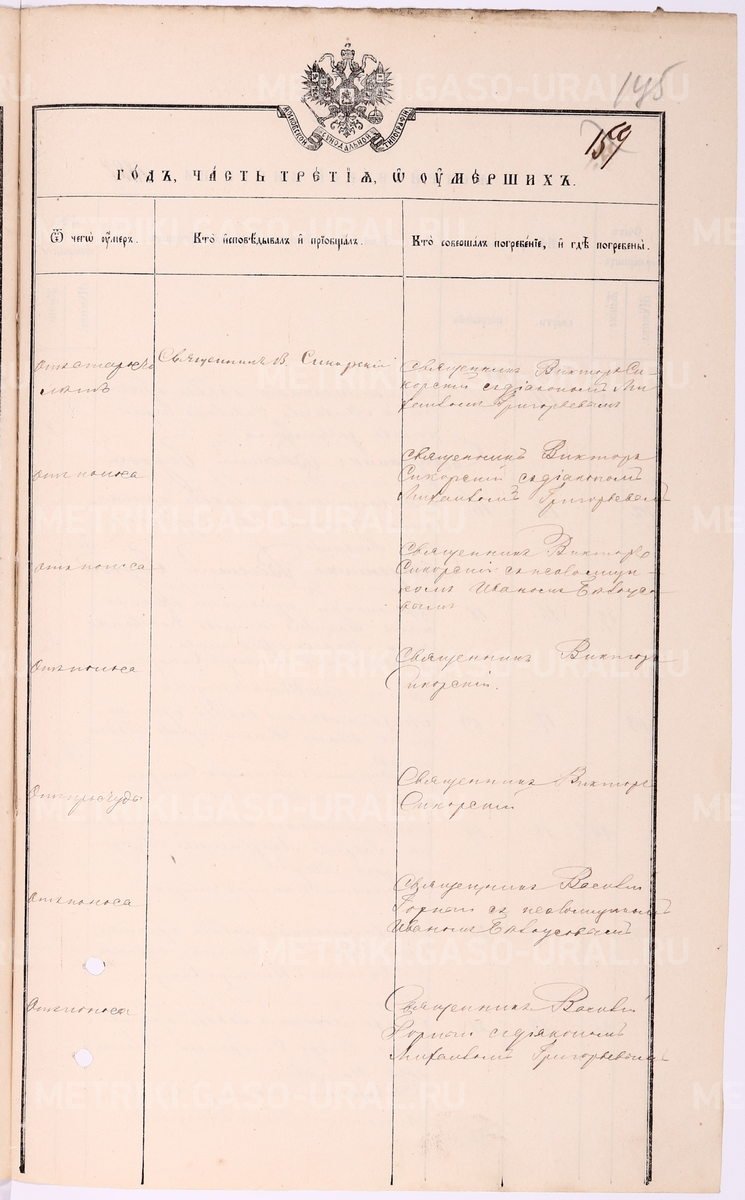 145
159
МОСКОВСКОЙ СѴНОДАЛЬНОЙ ТИПОГРАФІИ
ГО́ДЪ, ЧА́СТЬ ТРЕ́ТІѦ, Ѡ҆ ОУ҆МЕ́РШИХЪ.
Ѿ чегѡ̀ оу҆́меръ.
Кто̀ и҆сповѣ́дывалъ и҆ прїѡбща́лъ.
Кто̀ соверша́лъ погребе́нїе, и҆ гдѣ̀ погребены̀.
Отъ старости
лѣтъ
Священникъ В. Сикорскій
Священникъ Викторъ Си-
корскій съ діакономъ Ми-
хаиломъ Григорьевымъ
Отъ поноса
Священникъ Викторъ
Сикорскій съ діакономъ
Михаиломъ Григорьевымъ
Отъ поноса
Священникъ Викторъ
Сикорскій съ псаломщи-
комъ Иваномъ Бѣлоусо-
вымъ
Отъ поноса
Священникъ Викторъ
Сикорскій.
Отъ простуды
Священникъ Викторъ
Сикорскій
Отъ поноса
Священникъ Василій
Горный съ псаломщикомъ
Иваномъ Бѣлоусовымъ
Отъ поноса
Священникъ Василій
Горный съ діакономъ
Михаиломъ Григорьевымъ
METRIKI.GASO-URAL.RU